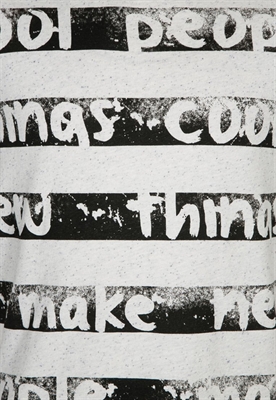 ool peop
ings cool
ew things
make ne
ople ma